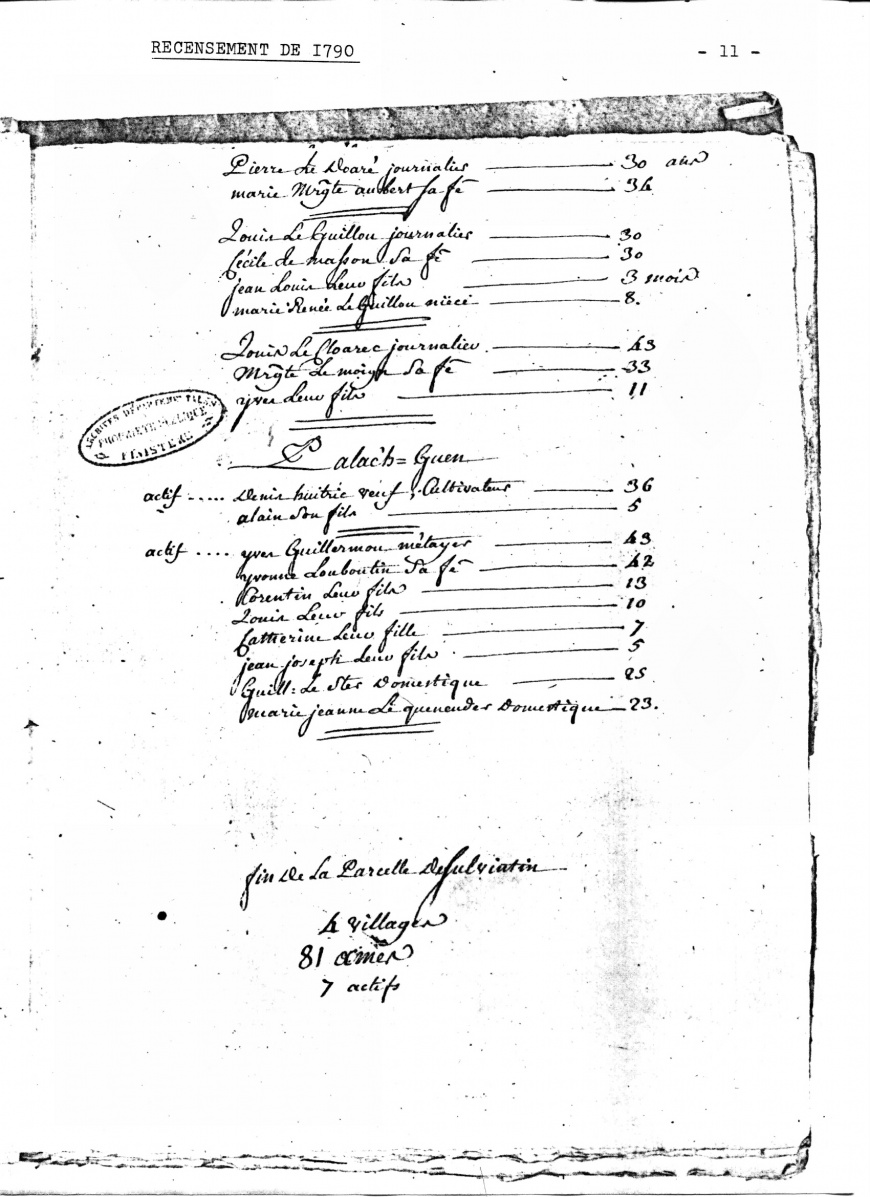 RECENSEMENT DE I790
- 11 -
Pierre Le Doaré journalier 30 ans
marie Mrgte aubert sa fe 34
Louis Le Guillou journalier 30
Cécile de masson Sa fe 30
jean Louis Leur fils 3 mois
marie Renée Le Guillou niéce 8.
Louis Le Cloarec journalier 43
Mrgte Le moign Sa fe 33
yves Leur fils 11
ARCHIVES DÉPARTEMENTALES
PROPRIÉTÉ PUBLIQUE
FINISTÈRE
Palac'h=Guen
actif ..... Denis huitric veuf, Cultivateur 36
alain Son fils 5
actif .... yves Guillermou métayer 43
yvonne Louboutin Sa fe 42
Corentin Leur fils 13
Louis Leur fils 10
Catherine Leur fille 7
jean joseph Leur fils 5
Guill: Le Ster Domestique 25
marie jeanne Le queneuder Domestique 23.
fin De La Parcelle De Sulviatin
4 villages
81 ames
7 actifs